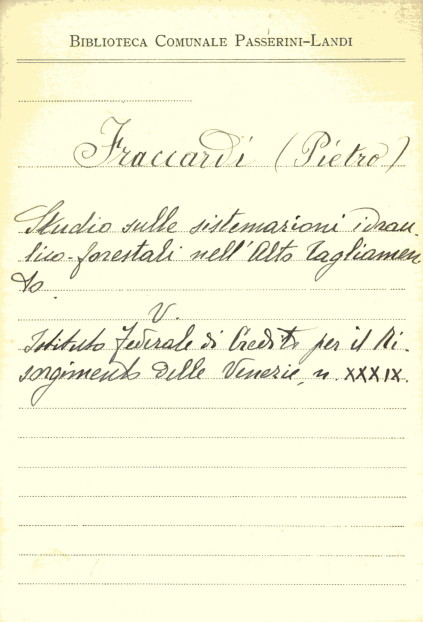 BIBLIOTECA COMUNALE PASSERINI-LANDI
Fraccardi (Pietro)
Studio sulle sistemazioni idrau-
lico-forestali nell'Alto Tagliamen
to.
V.
Istituto Federale di Credito per il Ri-
sorgimento delle Venezie, n. XXXIX.